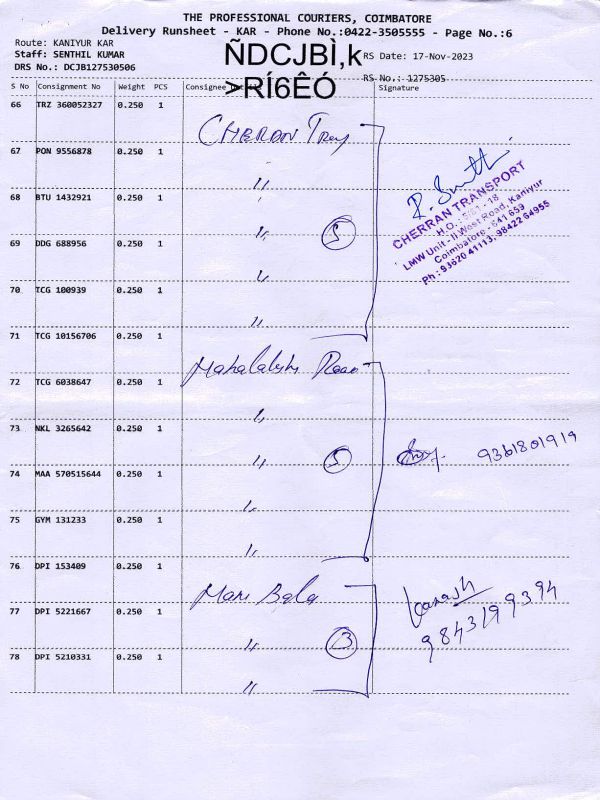 THE PROFESSIONAL COURIERS, COIMBATORE
Delivery Runsheet - KAR - Phone No.:0422-3505555 - Page No.:6
Route: KANIYUR KAR
Staff: SENTHIL KUMAR
DRS No.: DCJB127530506
ÑDCJBÌ,k
>RÍ6ÊÓ
RS Date: 17-Nov-2023
RS No.: 1275305
S No Consignment No Weight PCS Consignee Signature
66 TRZ 360052327 0.250 1
CHERAN
67 PON 9556878 0.250 1 〃
68 BTU 1432921 0.250 1 〃
69 DDG 688956 0.250 1 〃
5
70 TCG 100939 0.250 1 〃
CHERRAN TRANSPORT
H.O. : 5/61 - 18
LMW Unit - II West Road, Kaniyur
Coimbatore - 641 659
Ph : 93620 41113, 98422 64955
71 TCG 10156706 0.250 1
72 TCG 6038647 0.250 1 〃
73 NKL 3265642 0.250 1 〃
5
9361801919
74 MAA 570515644 0.250 1 〃
75 GYM 131233 0.250 1 〃
76 DPI 153409 0.250 1
Mari Bala
77 DPI 5221667 0.250 1 〃
3
9843199394
78 DPI 5210331 0.250 1 〃